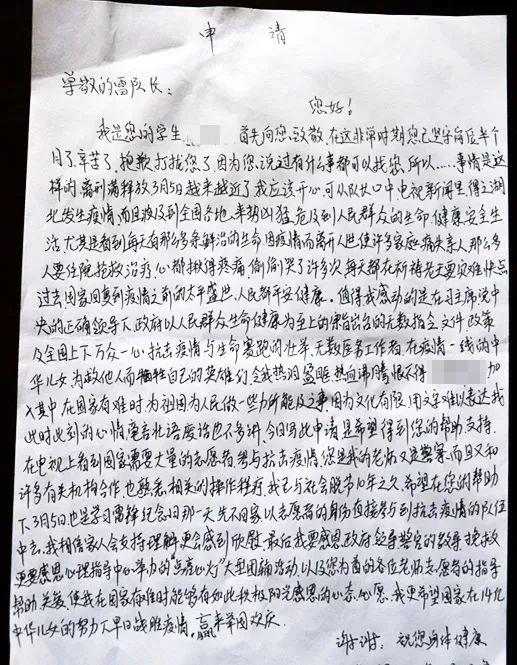 申 请
尊敬的雷队长：
您好！
我是您的学生 首先向您致敬，在这非常时期您已坚守岗位半个
月了辛苦了，抱歉打扰您了，因为您说过有什么事都可以找您，所以……事情是这
样的，离刑满释放3月5日越来越近了我应该开心可从队长口中，电视新闻里，得之湖
北发生疫情，而且波及到全国各地，来势凶猛，危及到人民群众的生命健康安全生
活，尤其是看到每天有那么多条鲜活的生命因疫情而离开人世，使许多家庭痛失亲人那么多
人要住院抢救治疗，心都揪得疼痛，偷偷哭了许多次，每天都在祈祷老天要灾难快点
过去，国家回复到疫情之前的太平盛世，人民都平安健康。值得我感动的是在习主席党中
央的正确领导下，政府以人民群众生命健康为至上的 出台的无数指令文件政策
及全国上下万众一心，抗击疫情与生命赛跑的壮举，无数医务工作者，在疫情一线的中
华儿女，为救他人而牺牲自己的英雄们，令我热泪盈眶，热血沸腾，恨不得 加
入其中，在国家有难时为祖国为人民做一些力所能及之事，因为文化有限，用文字难以表达我
此时此刻的心情，豪言壮语废话也不多讲，今日写此申请是希望得到您的帮助支持。
在电视上看到国家需要大量的志愿者，参与抗击疫情，您是我的老师又是警察，而且又和
许多有关机构合作，也熟悉相关的操作程序，我已与社会脱节10年之久，希望在您的帮助
下3月5日，也是学习雷锋纪念日那一天先不回家，以志愿者的身份直接参与到抗击疫情的队伍
中去，我相信家人会支持理解更会感到欣慰。最后我要感恩政府领导警官的教导，挽救
更要感恩心理指导中心举力的“点亮心灯”大型团辅活动，以及您为首的各位老师志愿者的指导
帮助，关爱，使我在国家有难时能够有如此积极阳光感恩的心态，心愿，我更希望国家在14亿
中华儿女的努力下早日战胜疫情，赢来举国欢庆。
谢谢：祝您身体健康